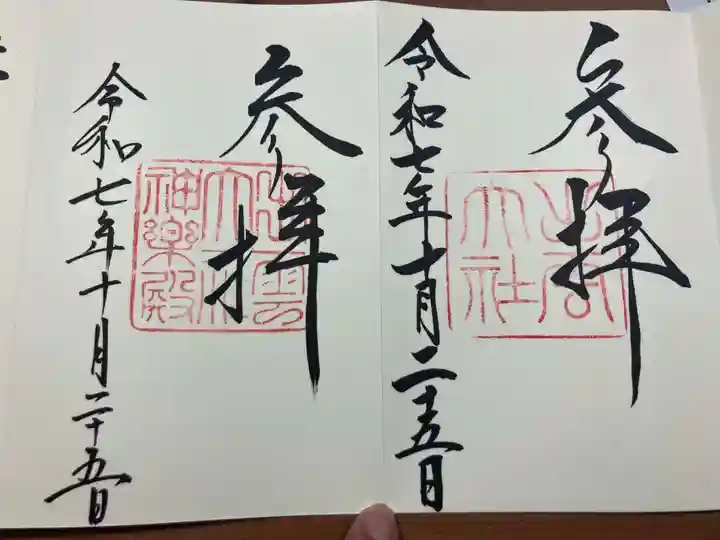 参拝
出雲
大社
令和七年十月二十五日
参拝
出雲
大社
神楽殿
令和七年十月二十五日